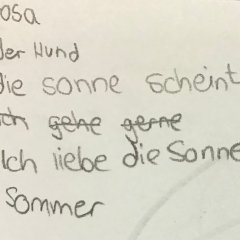 osa
der Hund
die sonne scheint
ich gehe gerne
Ich liebe die Sonne
Sommer